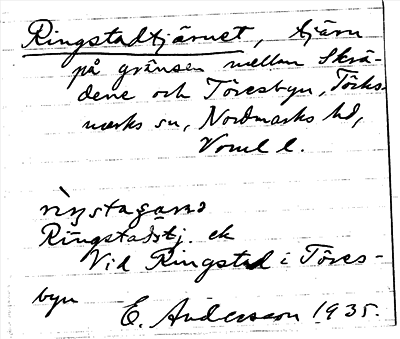 Ringstadtjärnet, tjärn
på gränsen mellan Skrä-
dene och Töresbyn, Töcks-
marks sn, Nordmarks hd,
Vrml l.
Ringstadstj. ek
Vid Ringstad i Töres-
byn
E. Andersson 1935.